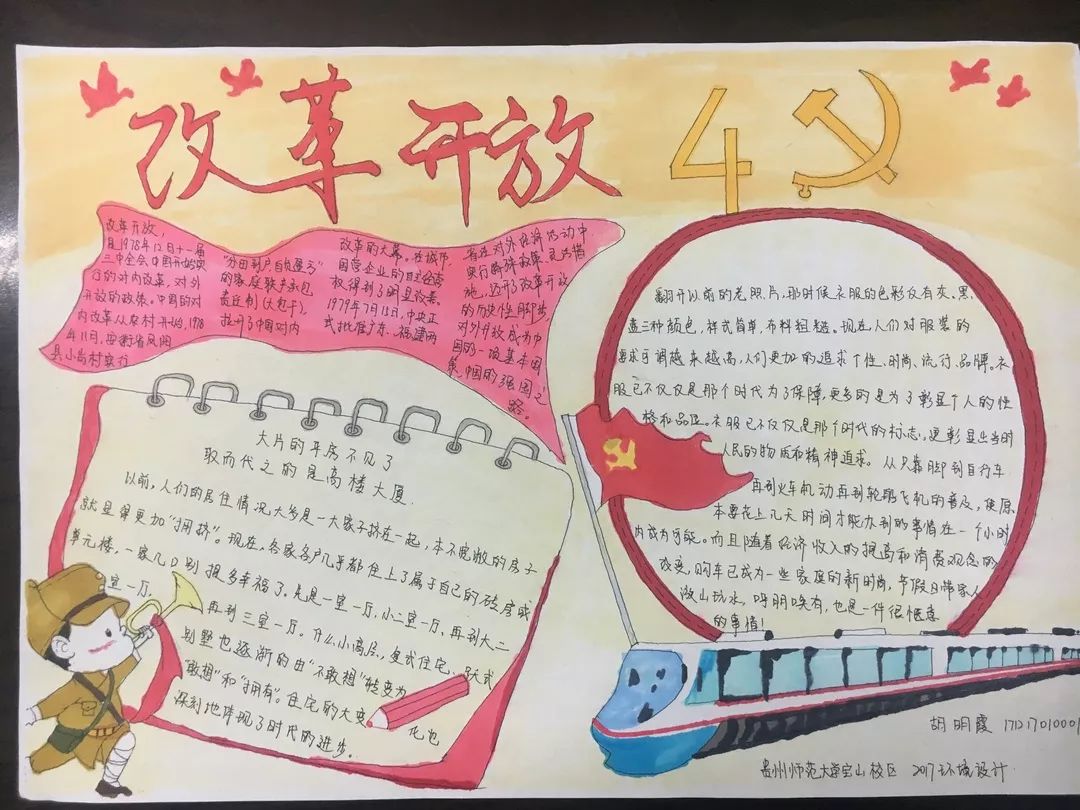 改革开放 4
改革开放,
是1978年12日十一届
三中全会中国开始实
行的对内改革,对外
开放的政策。中国的对
内改革从农村开始,1978
年11月,安徽省凤阳
县小岗村实行
“分田到户自负盈亏”
的家庭联产承包
责任制(大包干),
拉开了中国对内
改革的大幕。在城市,
国营企业的自主经营
权得到了明显改善。
1979年7月15日,中央正
式批准广东、福建两
省在对外经济活动中
实行特殊政策、灵活措
施,迈开了改革开放
的历史性脚步,
对外开放成为中
国的一项基本国
策,中国的强国之
路。
大片的平房不见了
取而代之的是高楼大厦
以前,人们的居住情况大多是一大家子挤在一起,本不宽敞的房子
就显得更加“拥挤”。现在,各家各户几乎都住上了属于自己的砖房或
单元楼,一家几口别提多幸福了。先是一室一厅,小二室一厅、再到大二
室一厅,
再到三室一厅。什么小高层、复式住宅、跃式
别墅也逐渐的由“不敢想”转变为
“敢想”和“拥有”。住宅的大变化也
深刻地体现了时代的进步。
翻开以前的老照片,那时候衣服的色彩仅有灰、黑、
蓝三种颜色,样式简单,布料粗糙。现在人们对服装的
要求可谓越来越高,人们更加的追求个性、时尚、流行、品牌。衣
服已不仅仅是那个时代为了保障,更多的是为了彰显个人的性
格和品位。衣服已不仅仅是那个时代的标志,更彰显出当时
人民的物质和精神追求。从只靠脚到自行车
再到火车机动再到轮船飞机的普及,使原
本要花上几天时间才能办到的事情在一个小时
内成为可能。而且随着经济收入的提高和消费观念的
改变,购车已成为一些家庭的新时尚,节假日带家人
游山玩水,呼朋唤友,也是一件很惬意
的事情!
胡明霞
贵州师范大学宝山校区 2017环境设计